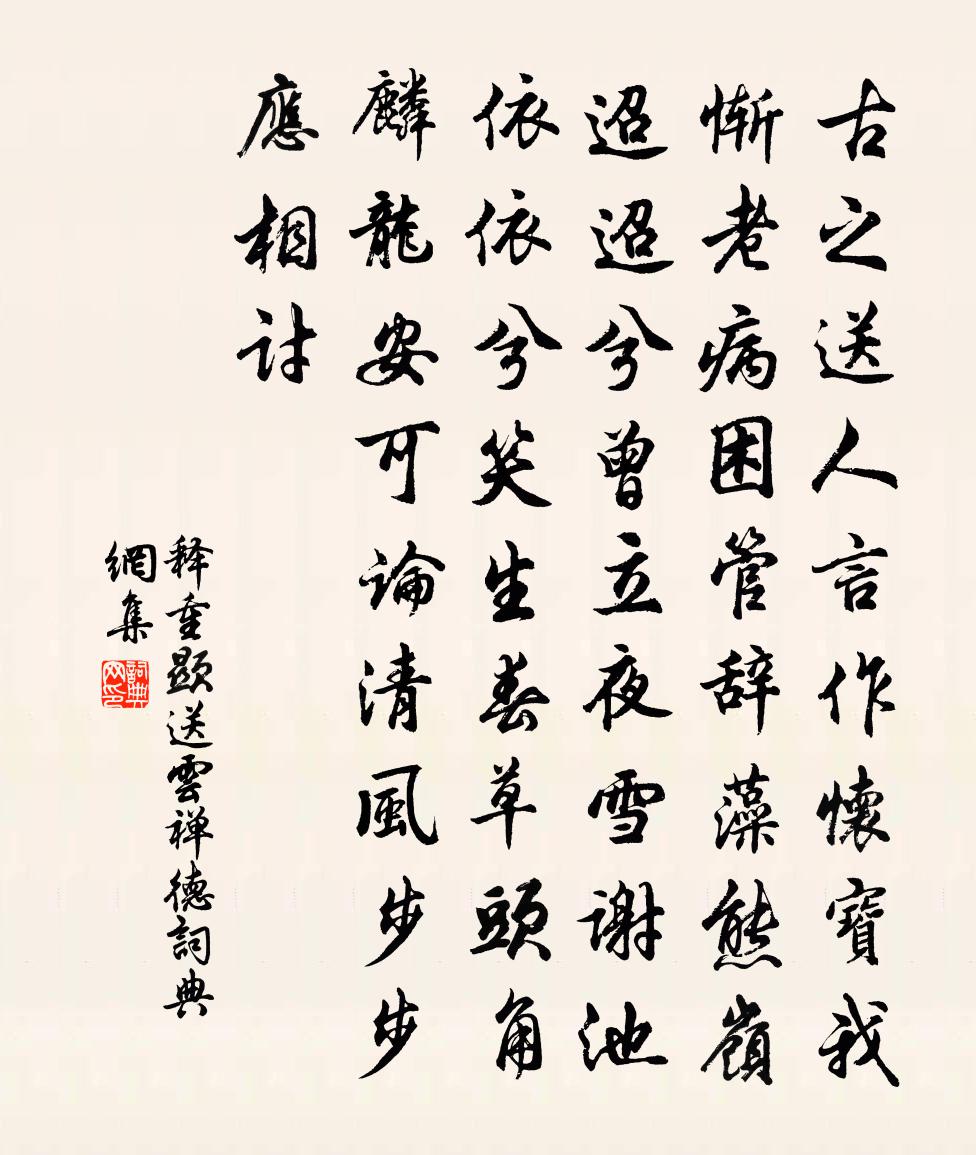 古之送人言作懷寶我
慚老病困管辞藻熊嶺
迢迢兮曾立夜雪謝池
依依兮笑生春草頭角
麟龍安可論清風步步
應相討
释重顯送雲禅德詞典
網集
詞典
网印